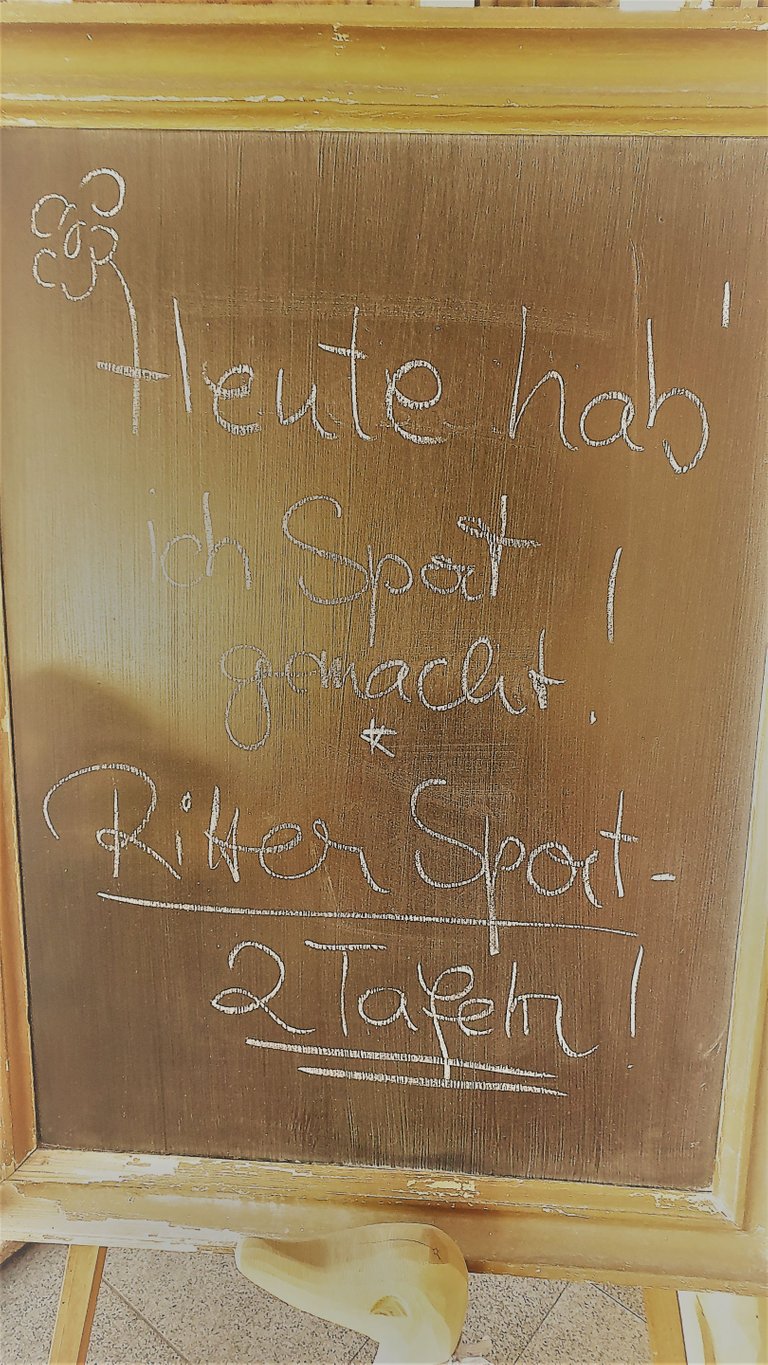 Heute hab'
ich Sport
gemacht!
*
Ritter Sport-
2 Tafeln!